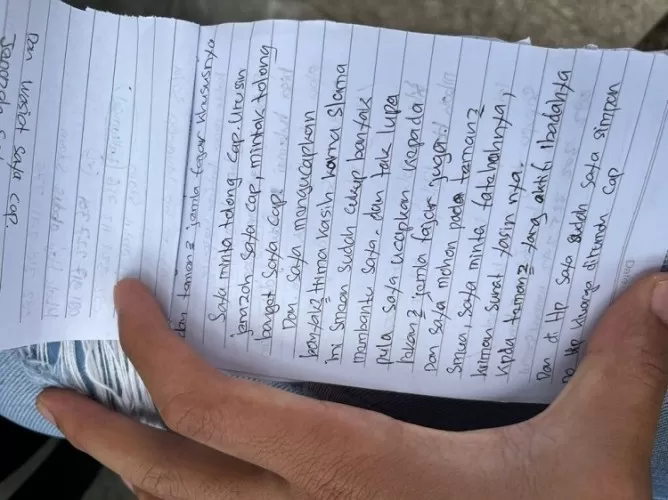 dan taman2 jamla fajar khususnya
Saya minta tolong cap. Urusin
jenazah saya cap, mintak tolong
banget saya cap.
Dan saya mengucapkan
banyak2 trima kasih karna slama
ini smaan sudah cukup banyak
manbantu saya. dan tak lupa
pula saya ucapkan kepada
rekan2 jamla fajar juga.
Dan saya mohon pada taman2
Smua, saya minta fatehahnya,
kriman surat yasin nya.
kpda taman2 yang aktif ibadahnya
Dan di Hp saya sudah saya simpan
no Hp kluarga dirumah cap
Dan wasiat saya cp.